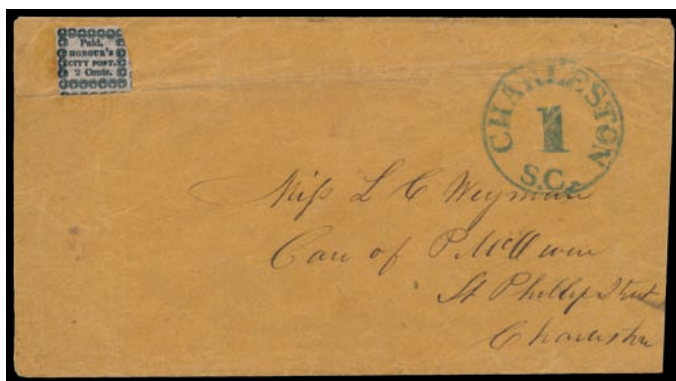 Paid,
HONOUR'S
CITY POST.
2 Cents.
CHARLESTON
1
S.C.
Miss L C Weyman
Care of P. McOwen
St Phillip Street
Charleston